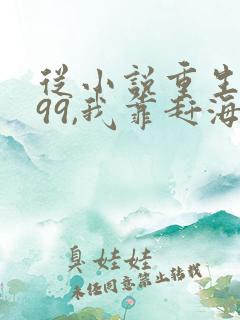 從小說重生
99,我靠赶海
臭娃娃
未经同意禁止转载